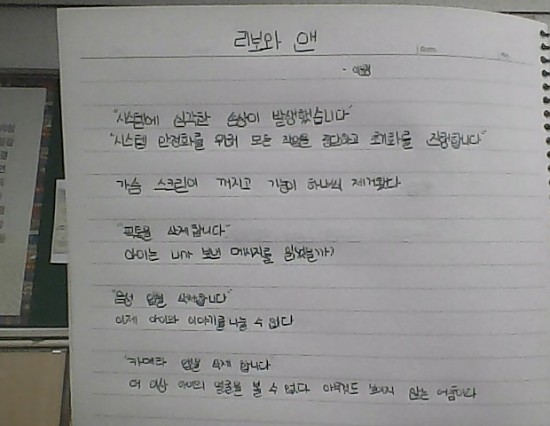 리보와 앤
"시스템에 심각한 손상이 발생했습니다"
"시스템 안정화를 위해 모든 작업을 중단하고 초기화를 진행합니다"
가슴 스크린이 꺼지고 기능이 하나씩 제거됐다
"픽톡을 삭제합니다"
아이는 내가 보낸 메시지를 읽었을까?
"음성 앱을 삭제합니다"
이제 아이와 이야기를 나눌 수 없다
"카메라 앱을 삭제 합니다
더 이상 아이의 얼굴을 볼 수 없다 아무것도 보이지 않는 어둠이다